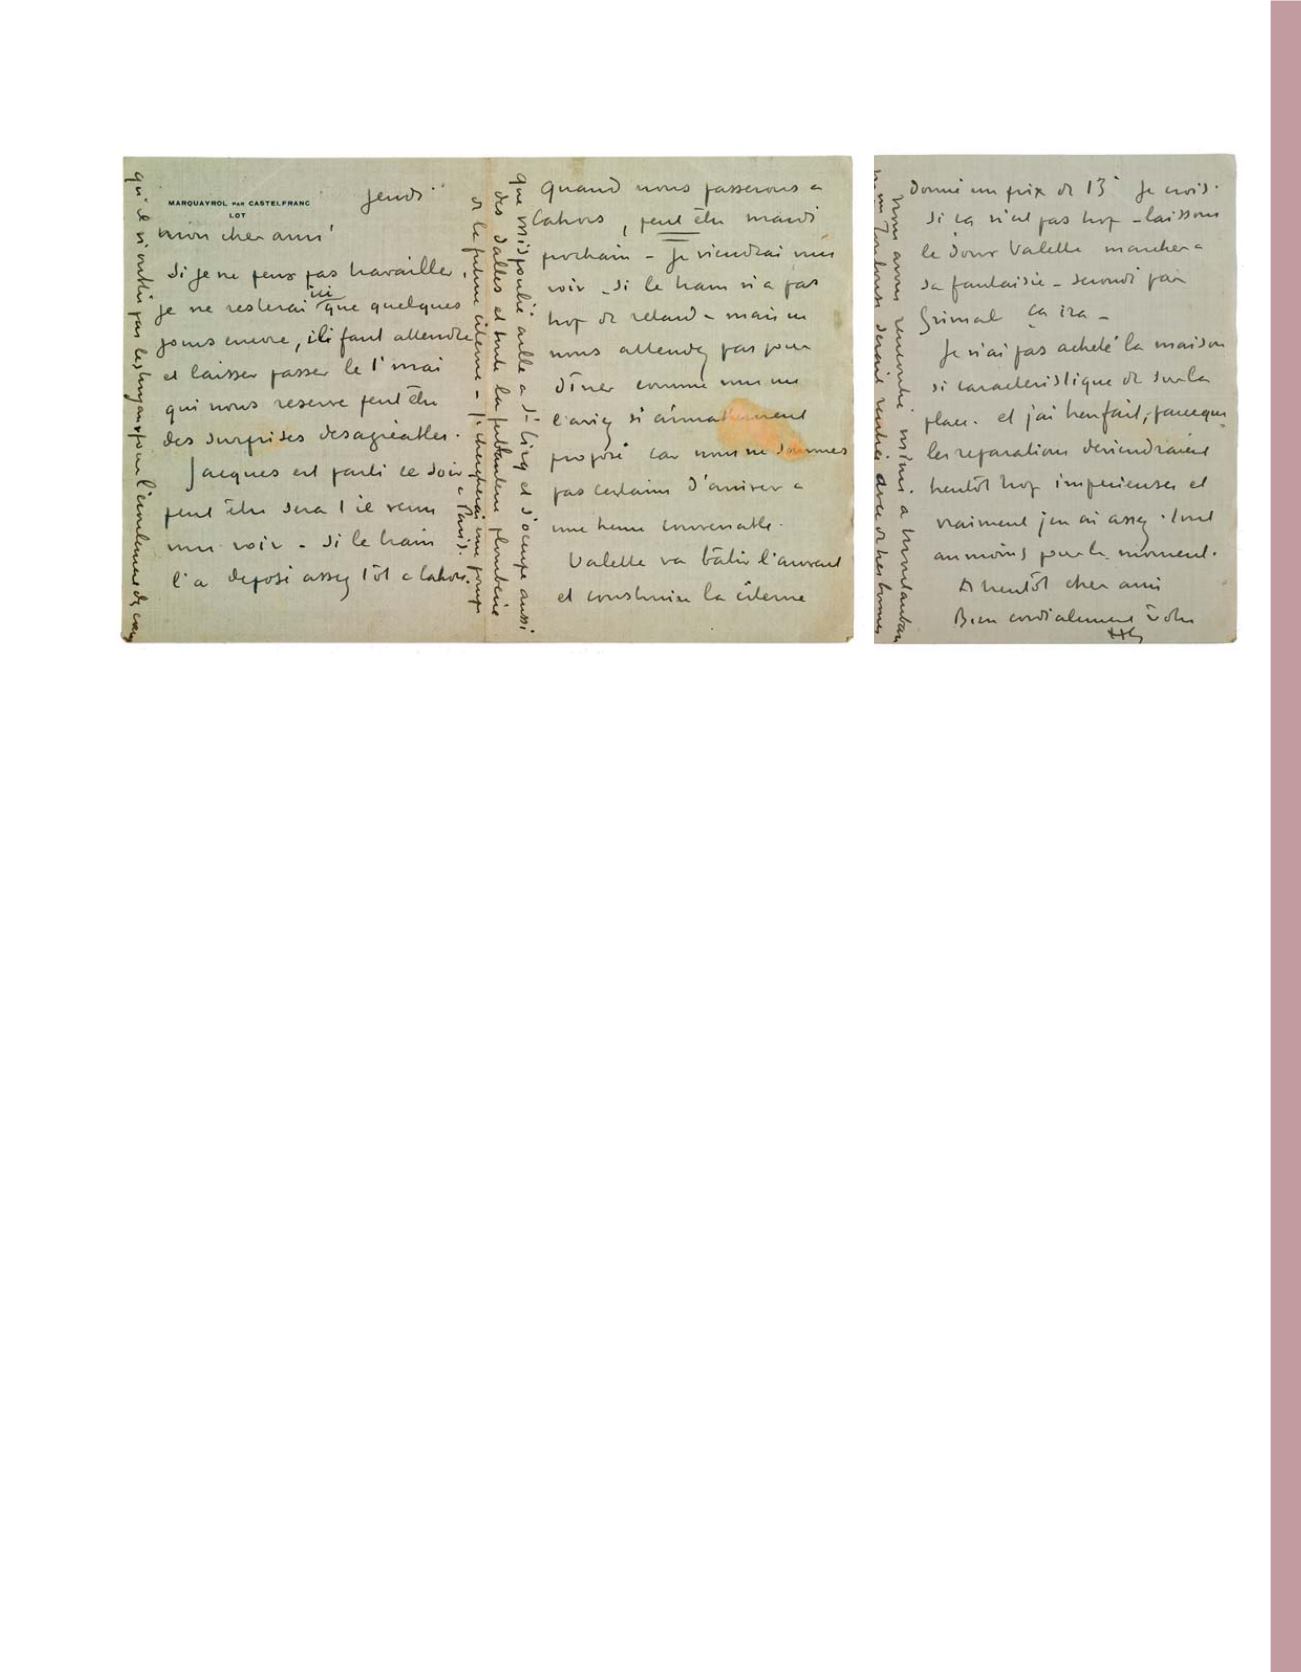 MARQUAYROL PAR CASTELFRANC
LOT
jeudi
mon cher ami
Si je ne peux pas travailler
ici
je ne resterai que quelques
jours encore, il faut attendre
et laisser passer le 1er mai
qui nous reserve peut être
des surprises desagréables.
Jacques est parti ce soir a Paris.
peut être sera t il venu
vous voir - si le train
l'a deposé assez tôt a Cahors.
Quand nous passerons a
Cahors, peut être mardi
prochain - je viendrai vous
voir - si le train n'a pas
trop de retard - mais ne
nous attendez pas pour
dîner comme vous me
l'aviez si aimablement
proposé car nous ne sommes
pas certains d'arriver a
une heure convenable.
Valette va bâtir l'auvent
et construire la citerne
que Mr Spoulié aille a St Cirq et s'occupe aussi
des dalles et toute la plomberie
de la future citerne - je chercherai une pompe
qu'il n'oublie pas les tuyaux pour l'écoulement des eaux
donné un prix de 13 je crois.
Si ça n'est pas trop - laissons
le doux Valette marcher a
sa fantaisie - secondé par
Grimal ça ira -
Je n'ai pas acheté la maison
si caracteristique de sur la
place. et j'ai bien fait, parceque
les reparations deviendraient
bientôt trop imperieuses et
vraiment j'en ai assez. tout
au moins pour le moment.
A bientôt cher ami
Bien cordialement votre
Nous avons rencontré a Montauban
Toulouse rentrés avec de tres bonnes